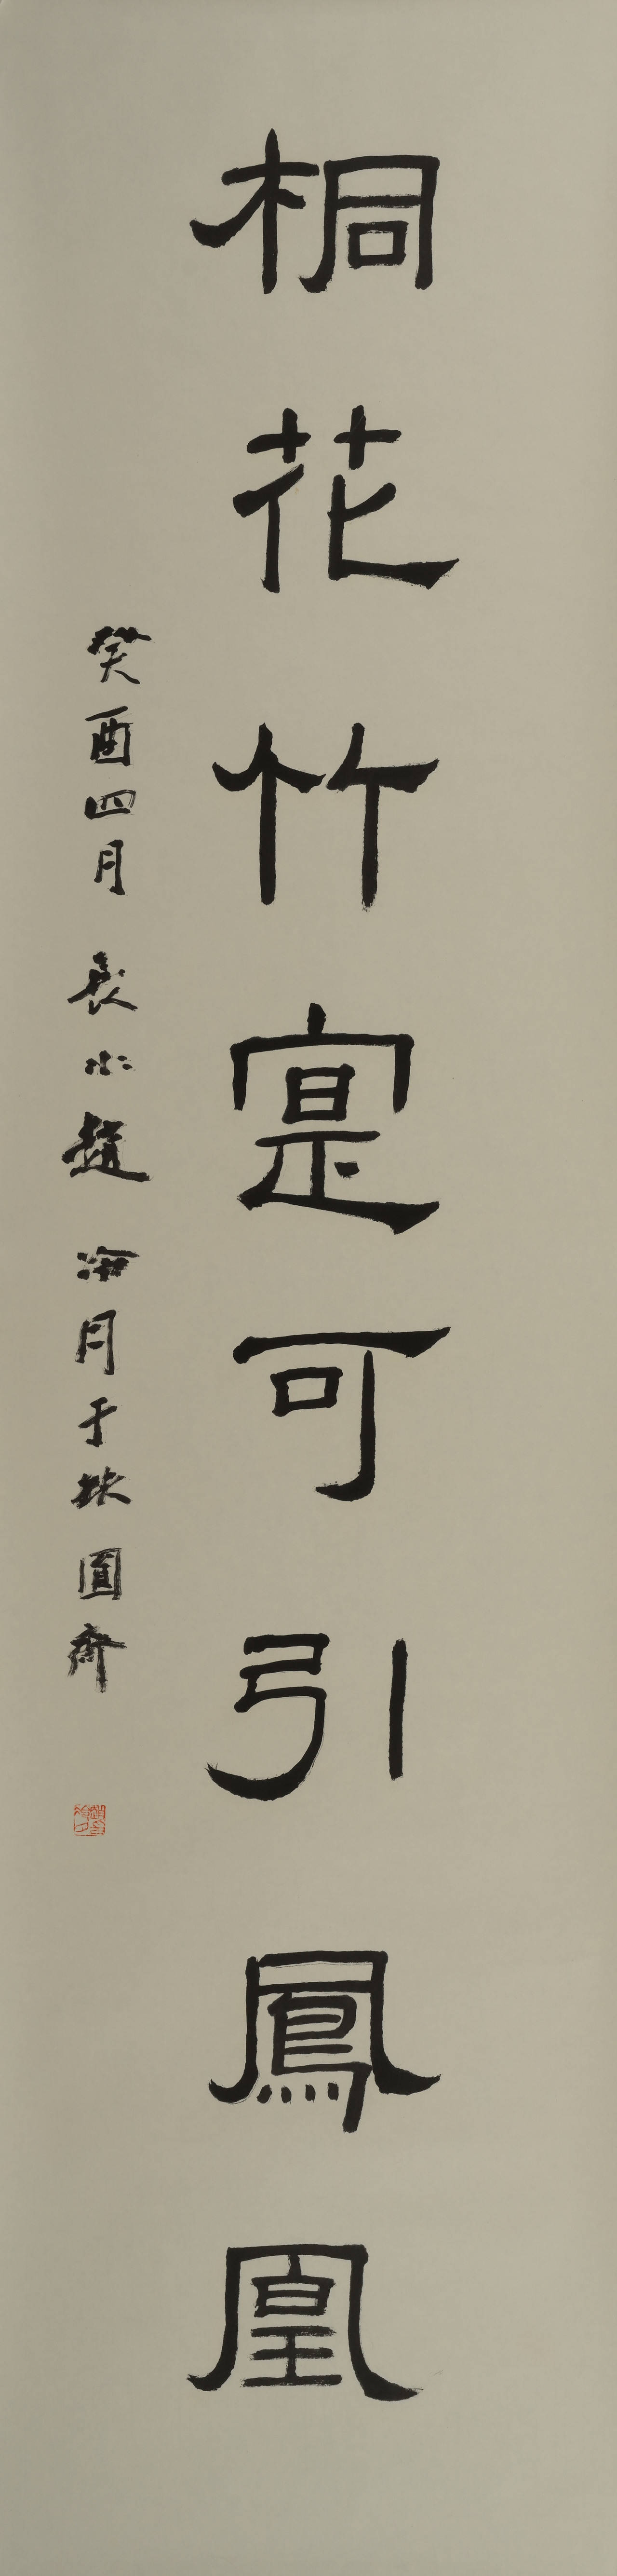 桐花竹寔可引鳳凰
癸酉四月長水趙冷月于缺圓齋